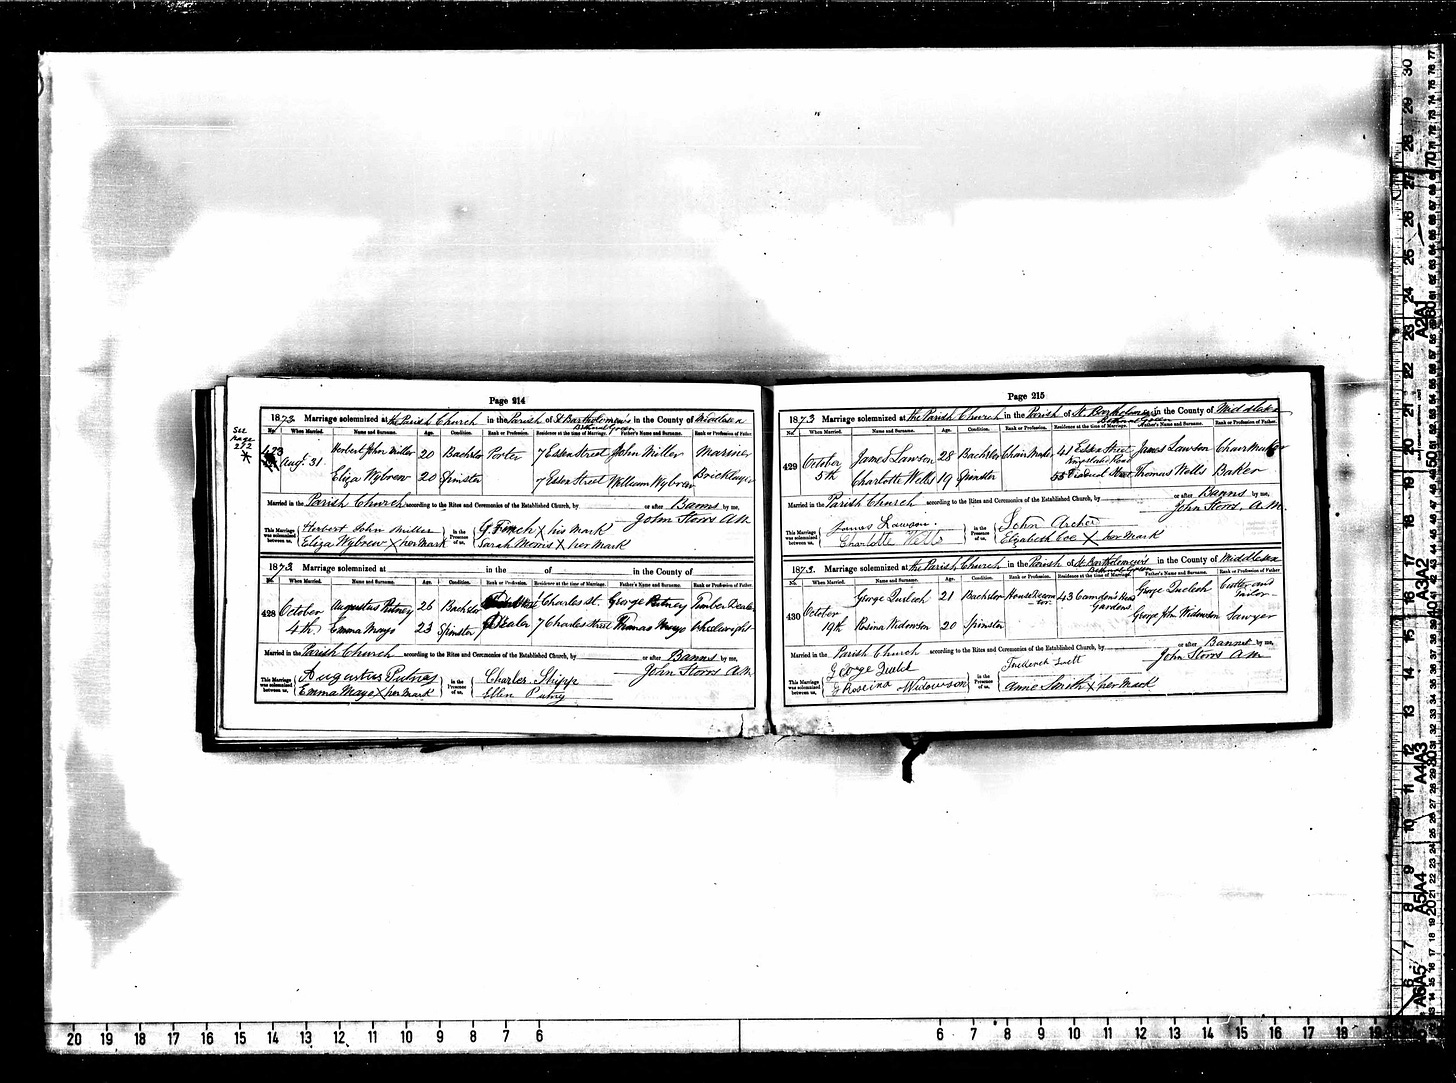 Page 214
1873. Marriage solemnized at the Parish Church in the Parish of St Bartholomew's Bethnal Green in the County of Middlesex
No. When Married. Name and Surname. Age. Condition. Rank or Profession. Residence at the time of Marriage. Father's Name and Surname. Rank or Profession of Father.
See Page 212 *
Augt. 31 Herbert John Miller 20 Bachelor Porter 7 Esken Street John Miller Mariner
Eliza Wybrew 20 Spinster 7 Esken Street William Wybrew Bricklayer
Married in the Parish Church according to the Rites and Ceremonies of the Established Church, by or after Banns by me,
John Storrs A.M.
This Marriage was solemnized between us, Herbert John Miller in the Presence of us, G. French X his Mark
Eliza Wybrew X her Mark Sarah Morris X her Mark
1873. Marriage solemnized at in the of in the County of
No. When Married. Name and Surname. Age. Condition. Rank or Profession. Residence at the time of Marriage. Father's Name and Surname. Rank or Profession of Father.
428 October 4th Augustus Putney 26 Bachelor Dealer 7 Charles St. George Putney Timber Dealer
Emma Mayo 23 Spinster 7 Charles Street Thomas Mayo Wheelwright
Married in the Parish Church according to the Rites and Ceremonies of the Established Church, by or after Banns by me,
John Storrs A.M.
This Marriage was solemnized between us, Augustus Putney in the Presence of us, Charles Shipp
Emma Mayo X her Mark Ellen Putny
Page 215
1873. Marriage solemnized at the Parish Church in the Parish of St. Bartholomew's Bethnal Green in the County of Middlesex
No. When Married. Name and Surname. Age. Condition. Rank or Profession. Residence at the time of Marriage. Father's Name and Surname. Rank or Profession of Father.
429 October 5th James Lawson 28 Bachelor Chair Maker 41 Esken Street Kingsland Road James Lawson Chair Maker
Charlotte Wells 19 Spinster 55 Street Thomas Wells Baker
Married in the Parish Church according to the Rites and Ceremonies of the Established Church, by or after Banns by me,
John Storrs, A.M.
This Marriage was solemnized between us, James Lawson. in the Presence of us, John Archer
Charlotte Wells Elizabeth Coe X her Mark
1873. Marriage solemnized at the Parish Church in the Parish of St Bartholomew's Bethnal Green in the County of Middlesex
No. When Married. Name and Surname. Age. Condition. Rank or Profession. Residence at the time of Marriage. Father's Name and Surname. Rank or Profession of Father.
430 October 19th George 21 Bachelor House Decorator 43 Camden's Head Gardens. George Cutter and Tailor
Rosina Widowson 20 Spinster George John Widowson Sawyer
Married in the Parish Church according to the Rites and Ceremonies of the Established Church, by or after Banns by me,
John Storrs A.M.
This Marriage was solemnized between us, George in the Presence of us, Frederick
Roseina Widowson Anne Smith X her Mark
20 19 18 17 16 15 14 13 12 11 10 9 8 7 6 6 7 8 9 10 11 12 13 14 15 16 17 18 19